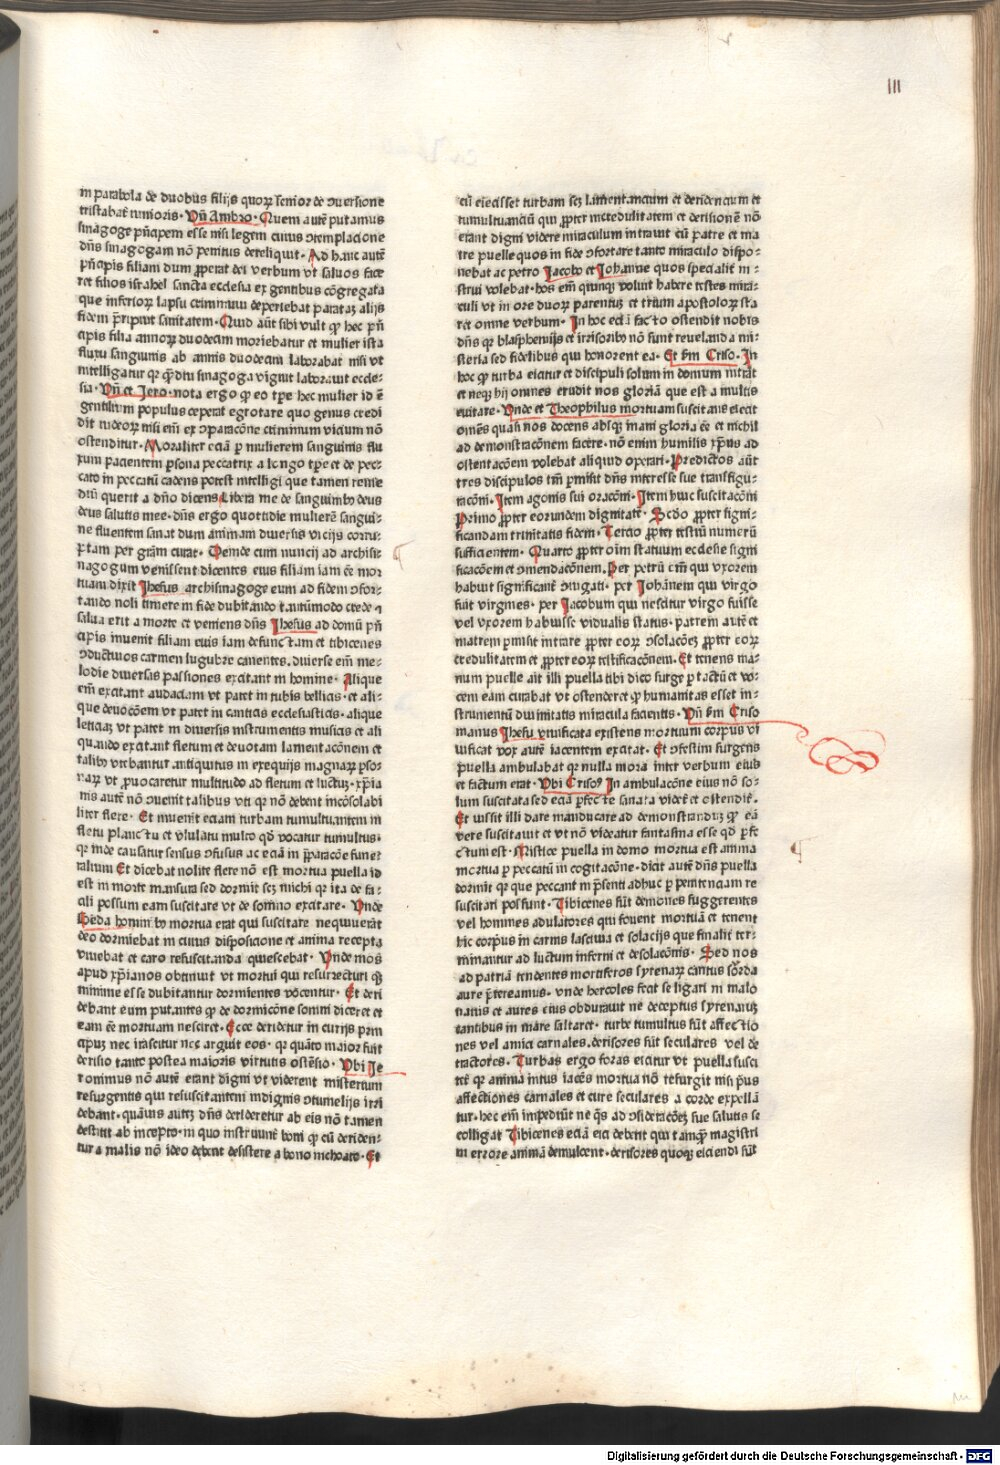 III
in parabola de duobus filijs quoꝝ senior de ↄuersione
tristabat᷑ iunioris · Vn̄ Ambro · Quem autē putamus
sinagoge pn̄cipem esse nisi legem cuius ↄtemplacione
dn̄s sinagogam nō penitus dereliquit · Ad hanc autē
pn̄cipis filiam dum ꝓperat dei verbum vt saluos face
ret filios israhel sancta ecclesia ex gentibus cōgregata
que inferioꝝ lapsu criminum deperiebat paratā alijs
fidem p̄ripuit sanitatem · Quid aūt sibi vult ꝙ hec pn̄
cipis filia annoꝝ duodecim moriebatur et mulier ista
fluxu sanguinis ab annis duodecim laborabat nisi vt
intelligatur qꝛ ꝙ̄diu sinagoga viguit laborauit eccle-
sia · Vn̄ et Jero · nota ergo ꝙ eo tꝑe hec mulier id ē
gentilium populus ceperat egrotare quo genus credi
dit iudeoꝝ nisi em̄ ex ↄparacōne criminum vicium nō
ostenditur · Moraliter eciā ꝑ mulierem sanguinis flu
xum pacientem ꝑsona peccatrix a longo tꝑe et de pec-
cato in peccatū cadens potest intelligi que tamen reme
diū querit a dn̄o dicens Libera me de sanguinibꝰ deus
deus salutis mee · dn̄s ergo quottidie mulierē sangui-
ne fluentem sanat dum animam diuersis vicijs corru-
ptam per grām curat · Deinde cum nuncij ad archisi-
nagogum venissent dicentes eius filiam iam eē mor
tuam dixit Jhesus archisinagoge eum ad fidem ↄfor-
tando noli timere in fide dubitando tantūmodo crede ⁊
salua erit a morte et veniens dn̄s Jhesus ad domū pn̄
cipis inuenit filiam eius iam defunctam et tibicenes
ↄductiuos carmen lugubre canentes. diuerse em̄ me-
lodie diuersas passiones excitant in homine · Alique
em̄ excitant audaciam vt patet in tubis bellicis · et ali-
que deuocōem vt patet in canticis ecclesiasticis · alique
leticiaꝫ vt patet in diuersis instrumentis musicis et ali
quando excitant fletum et deuotam lamentacōnem et
talibꝰ vtebantur antiquitus in exequijs magnaꝝ ꝑso-
naꝝ vt ꝓuocaretur multitudo ad fletum et luctuꝫ · xp̄ia
nis autē nō ↄuenit talibus vti qꝛ nō debent incōsolabi
liter flere · Et inuenit eciam turbam tumultuantem in
fletu planctu et vlulatu multo qd̄ vocatur tumultus ·
qꝛ inde causatur sensus ↄfusus ac eciā in p̄paracōe fune-
ralium Et dicebat nolite flere nō est mortua puella id
est in morte mansura sed dormit scꝫ michi qꝛ ita de fa-
cili possum eam suscitare vt de somno excitare · Vnde
Beda hominibꝰ mortua erat qui suscitare nequiuerāt
deo dormiebat in cuius disposicione et anima recepta
viuebat et caro resuscitanda quiescebat · Vnde mos
apud xp̄ianos obtinuit vt mortui qui resurrecturi eē
minime esse dubitantur dormientes vocentur · Et deri
debant eum putantes ꝙ de dormicōne somni diceret et
eam eē mortuam nesciret · Ecce deridetur in curijs prin
cipuꝫ nec irascitur nec arguit eos · qꝛ quāto maior fuit
derisio tanto postea maioris virtutis ostēsio · Vbi Je
ronimus nō autē erant digni vt viderent misterium
resurgentis qui resuscitantem indignis ↄtumelijs irri
debant · quāuis auteꝫ dn̄s derideretur ab eis nō tamen
destitit ab incepto · in quo instruunt᷑ boni ꝙ cū deriden-
tur a malis nō ideo debent desistere a bono inchoato · Et
cū eiecisset turbam scꝫ lamentancium et deridencium et
tumultuanciū qui ꝓpter incredulitatem et derisionē nō
erant digni videre miraculum intrauit cū patre et ma
tre puelle quos in fide ↄfortare tanto miraculo dispo-
nebat ac petro Jacobo et Johanne quos specialit᷑ in-
strui volebat · hos em̄ quinqꝫ voluit habere testes mira-
culi vt in ore duoꝝ parentuꝫ et trium apostoloꝝ sta
ret omne verbum · In hoc eciā facto ostendit nobis
dn̄s qꝛ blasphemijs et irrisoribꝰ nō sunt reuelanda mi-
steria sed fidelibus qui honorent ea · Et bm̄ Criso · In
hoc ꝙ turba eicitur et discipuli solum in domum intrāt
et neqꝫ hij omnes erudit nos gloriā que est a multis
euitare · Vnde et Theophilus mortuam suscitans eiecit
omēs quasi nos docens absqꝫ inani gloria eē et nichil
ad demonstracōnem facere · nō enim humilis xp̄us ad
ostentacōem volebat aliquid operari · Predictos aūt
tres discipulos tm̄ ꝑmisit dn̄s interesse sue transfigu-
racōni · Item agonis sui oracōni · Item huic suscitacōni
Primo ꝓpter eorundem dignitatē · Scd̄o ꝓpter signi-
ficandam trinitatis fidem · Tercio ꝓpter testiū numerū
sufficientem · Quarto ꝓpter oīm statuum ecclesie signi
ficacōem et ↄmendacōnem. Per petrū em̄ qui vxorem
habuit significant᷑ ↄiugati · per Johānem qui virgo
fuit virgines · per Jacobum qui nescitur virgo fuisse
vel vxorem habuisse vidualis status · patrem autē et
matrem ꝑmisit intrare ꝓpter eoꝝ ↄsolacōeꝫ ꝓpter eoꝝ
credulitatem et ꝓpter eoꝝ testificacōnem. Et tenens ma-
num puelle ait illi puella tibi dico surge ꝑ tactū et vo-
cem eam curabat vt ostenderet ꝙ humanitas esset in-
strumentū diuinitatis miracula facientis · Vn̄ bm̄ Criso
manus Jhesu viuificata existens mortuum corpus vi
uificat vox autē iacentem excitat · Et ↄfestim surgens
puella ambulabat qꝛ nulla mora inter verbum eius
et factum erat · Vbi Crisoꝰ In ambulacōne eius nō so-
lum suscitata sed eciā ꝑfecte sanata videri et ostendit.
Et iussit illi dare manducare ad demonstranduꝫ ꝙ eā
vere suscitauit et vt nō videatur fantasma esse qd̄ ꝑfe
ctum est · Mistice puella in domo mortua est anima
mortua ꝑ peccatū in cogitacōne · dicit autē dn̄s puella
dormit qꝛ que peccant in p̄senti adhuc ꝑ penitenciam re
suscitari possunt · Tibicenes sūt demones suggerentes
vel homines adulatores qui fouent mortuā et tenent
hic corpus in carnis lasciuia et solacijs que finalit᷑ ter-
minantur ad luctum inferni et desolacōnis · Sed nos
ad patriā tendentes mortiferos syrenaꝝ cantus sorda
aure p̄tereamus · vnde hercoles fecit se ligari in malo
nauis et aures eius obdurauit ne deceptus syrenaruꝫ
cantibus in mare saltaret · turbe tumultus sūt affectio
nes vel amici carnales. derisores sūt seculares vel de
tractores · Turbas ergo foras eicitur vt puella susci
tet᷑ qꝛ anima intus iacēs mortua nō resurgit nisi p̄us
affectiones carnales et cure seculares a corde expellā
tur · hec em̄ impediūt ne qͥs ad ↄsideracōeꝫ sue salutis se
colligat Tibicenes eciā eici debent qui tamqꝫ magistri
in errore animā demulcent · derisores quoqꝫ eiciendi sūt
Digitalisierung gefördert durch die Deutsche Forschungsgemeinschaft - DFG